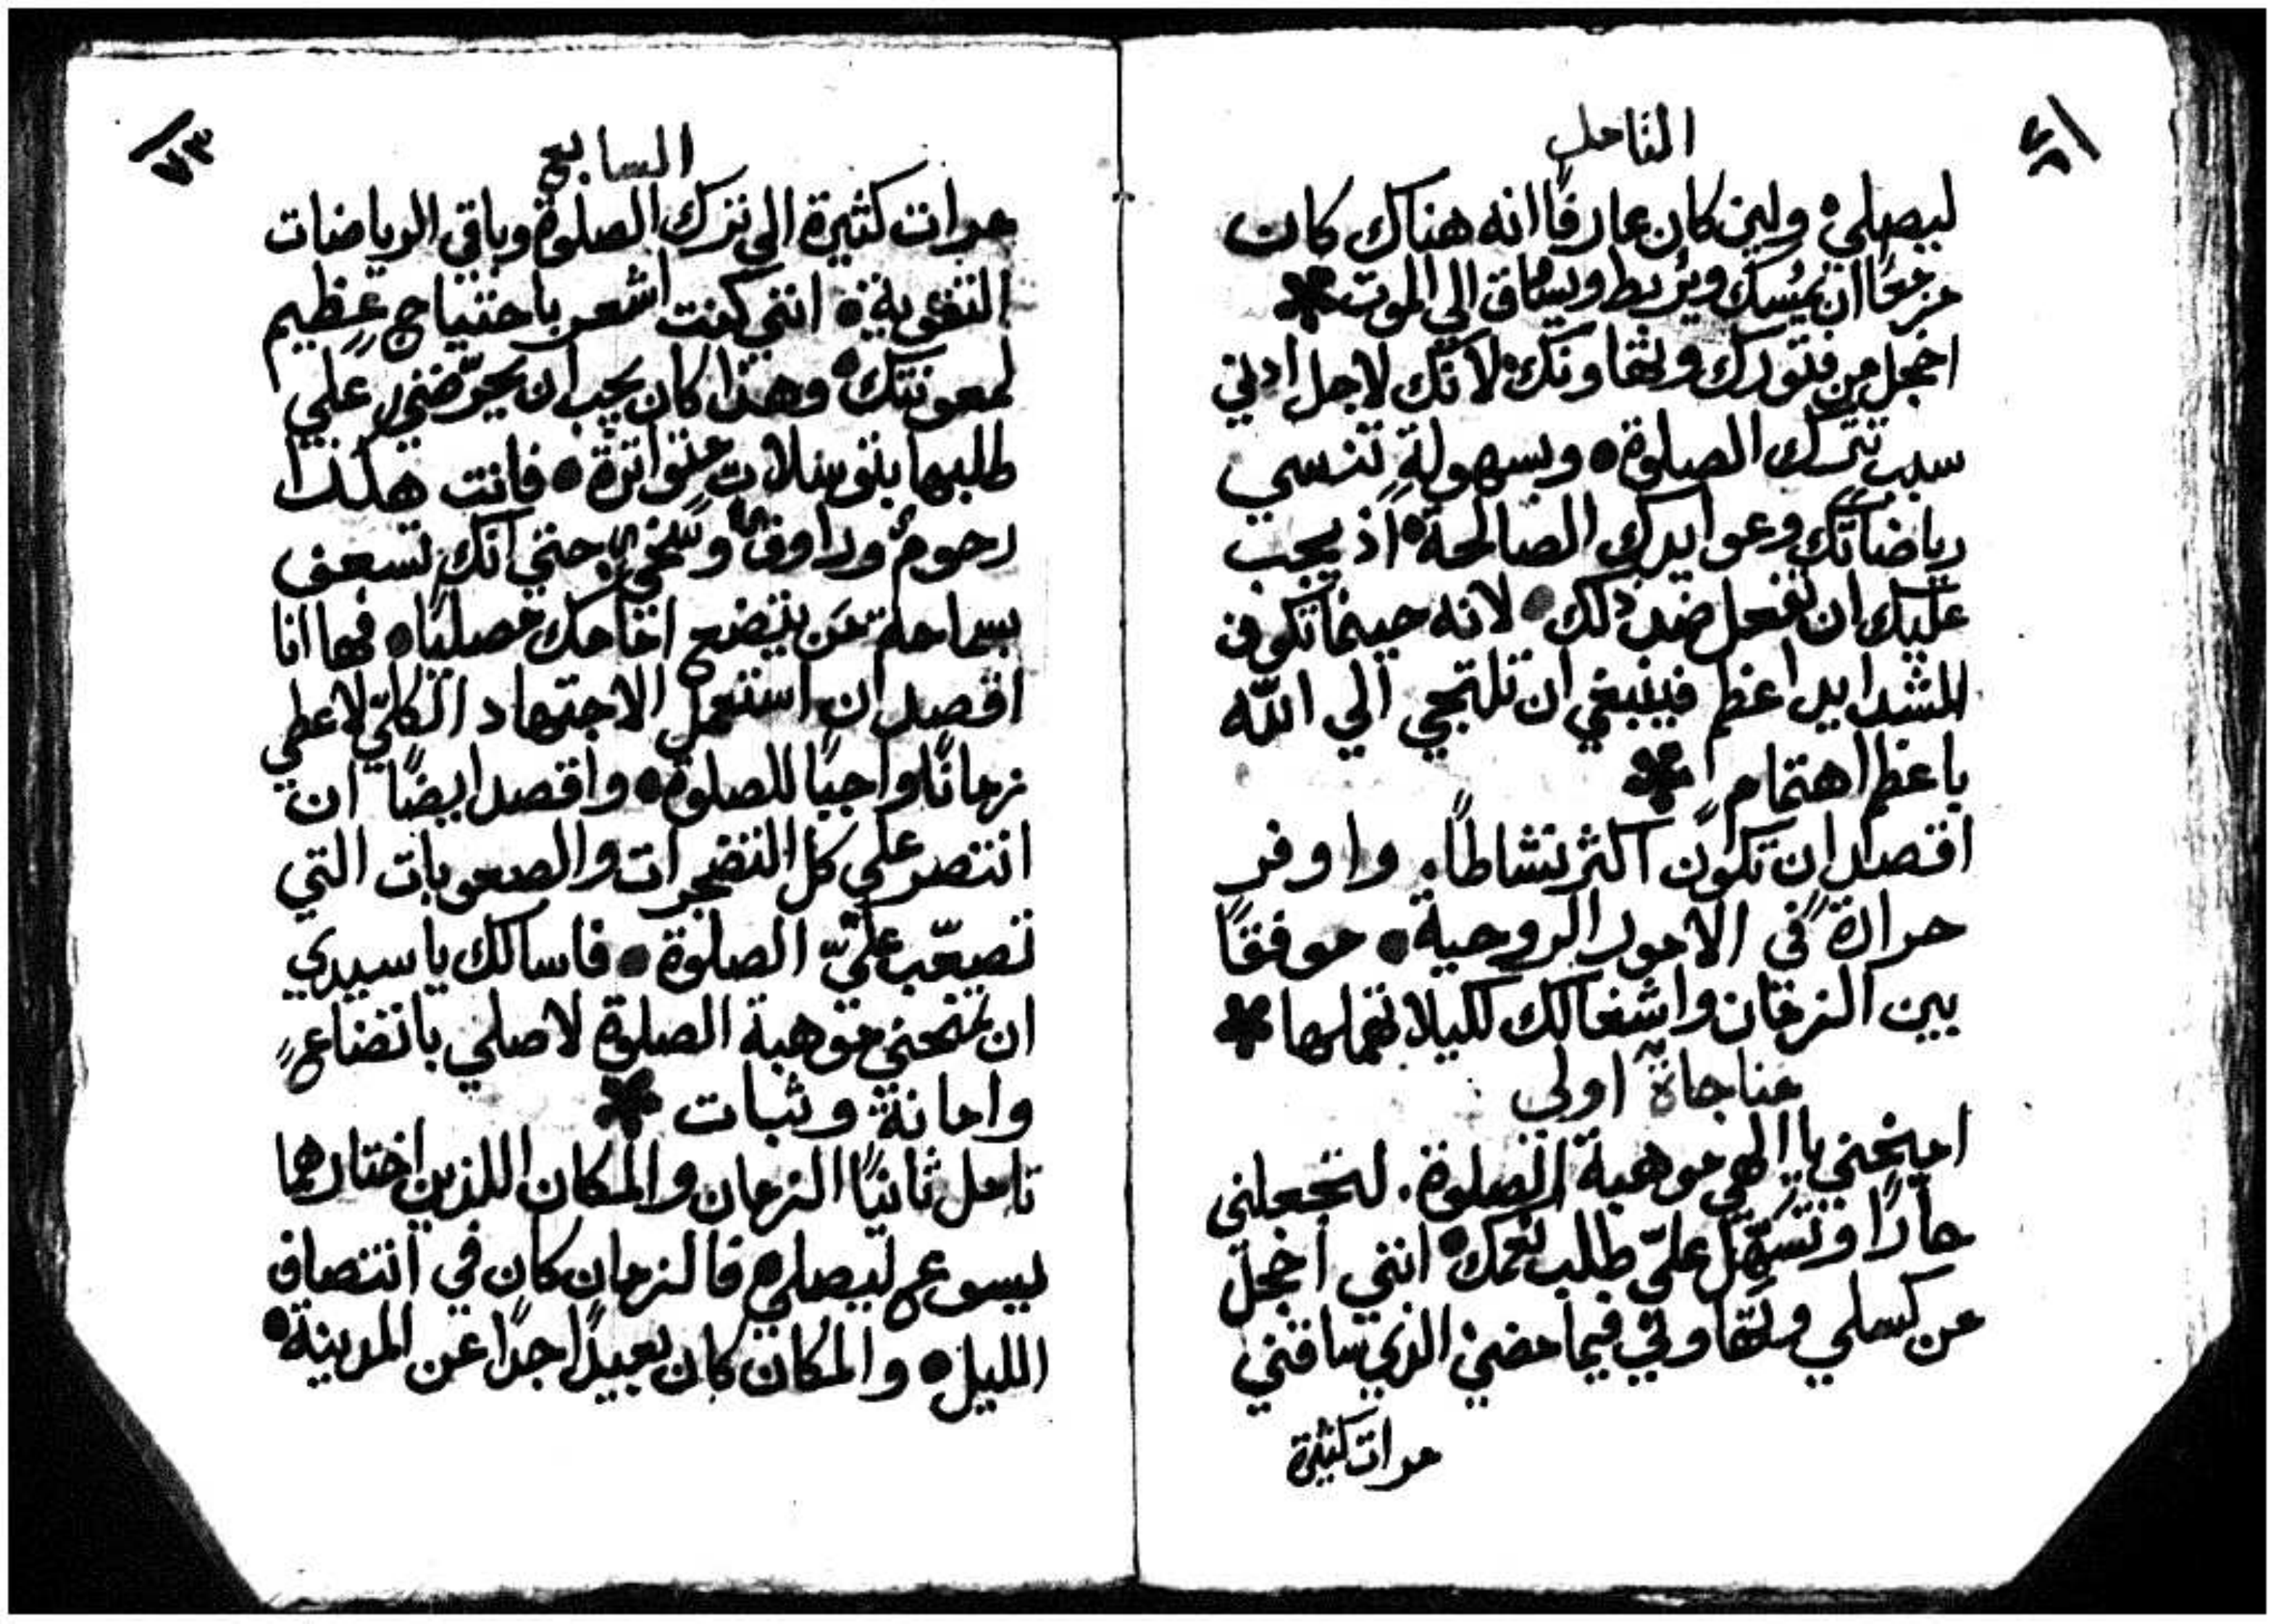 التامل
ليصلي ولين كان عارفًا انه هناك كان
مزمعًا ان يُمسك ويُربط ويساق الي الموت
اخجل من فتورك وتهاونك لانك لاجل ادني
سبب تترك الصلوة وبسهولةٍ تنسي
رياضاتك وعوايدك الصالحة اذ يجب
عليك ان تفعل ضد ذلك لانه حينما تكون
الشدايد اعظم فينبغي ان تلتجي الي الله
باعظم اهتمام
اقصد ان تكون اكثر نشاطًا. واوفر
حرارةً في الامور الروحية موفقًا
بين الزمان واشغالك لكيلا تهملها
مناجاة اولي
امنحني يا الهي موهبة الصلوة. لتجعلني
حارًا وتسهّل عليّ طلب نعمك انني اخجل
من كسلي وتهاوني فيما مضي الذي ساقني
مرات كثيرة
٧٣
السابع
مرات كثيرة الي ترك الصلوة وباقي الرياضات
التقوية انني كنت اشعر باحتياجٍ عظيم
لمعونتك وهذا كان يجب ان يحرّضني علي
طلبها بتوسلاتٍ متواترة فانت هكذا
رحوم وراوف وسخي حتي انك تسعف
بسماحة من يتضع امامك مصليًا فها انا
اقصد ان استعمل الاجتهاد الكلّي لاعطي
زمانًا واجبًا للصلوة واقصد ايضًا ان
انتصر علي كل التضجرات والصعوبات التي
تصعّب عليّ الصلوة فاسالك يا سيدي
ان تمنحني موهبة الصلوة لاصلي باتضاعٍ
وامانة وثبات
تامل ثانيًا الزمان والمكان اللذين اختارهما
يسوع ليصلي فالزمان كان في انتصاف
الليل والمكان كان بعيدًا جدًا عن المدينة